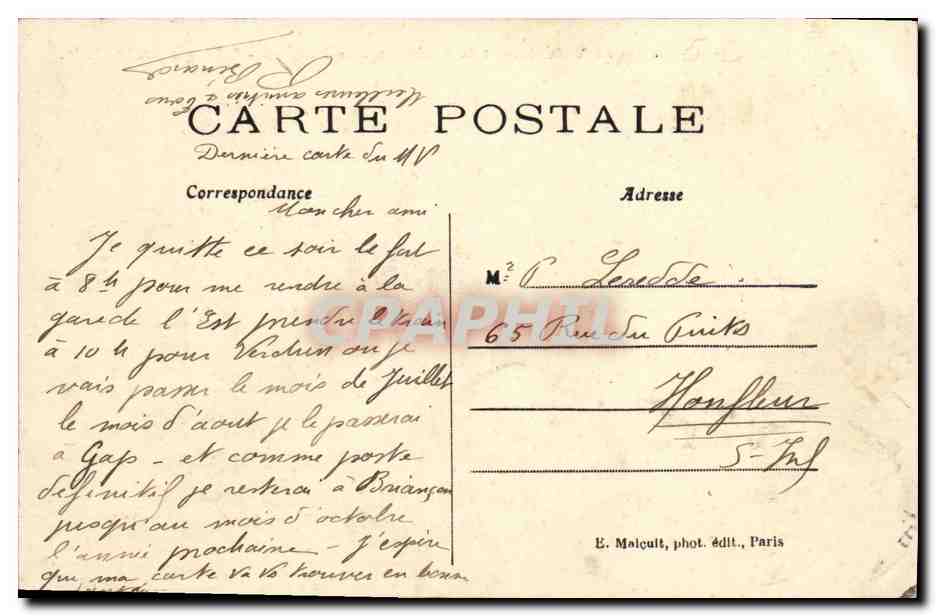 Meilleures amitiés à tous
R Bénard
CARTE POSTALE
Dernière carte du MV
Correspondance
Adresse
Mon cher ami
Je quitte ce soir le fort
à 8h pour me rendre à la
gare de l'Est prendre le train
à 10 h pour Verdun ou je
vais passer le mois de Juillet
le mois d'aout je le passerai
à Gap - et comme poste
definitif je resterai à Briançon
jusqu'au mois d'octobre
l'année prochaine - J'espère
que ma carte va vs trouver en bonne
Mr P Leredde
65 Rue du Puits
Honfleur
S-Inf
E. Malcuit, phot. édit., Paris
CPAPHIL